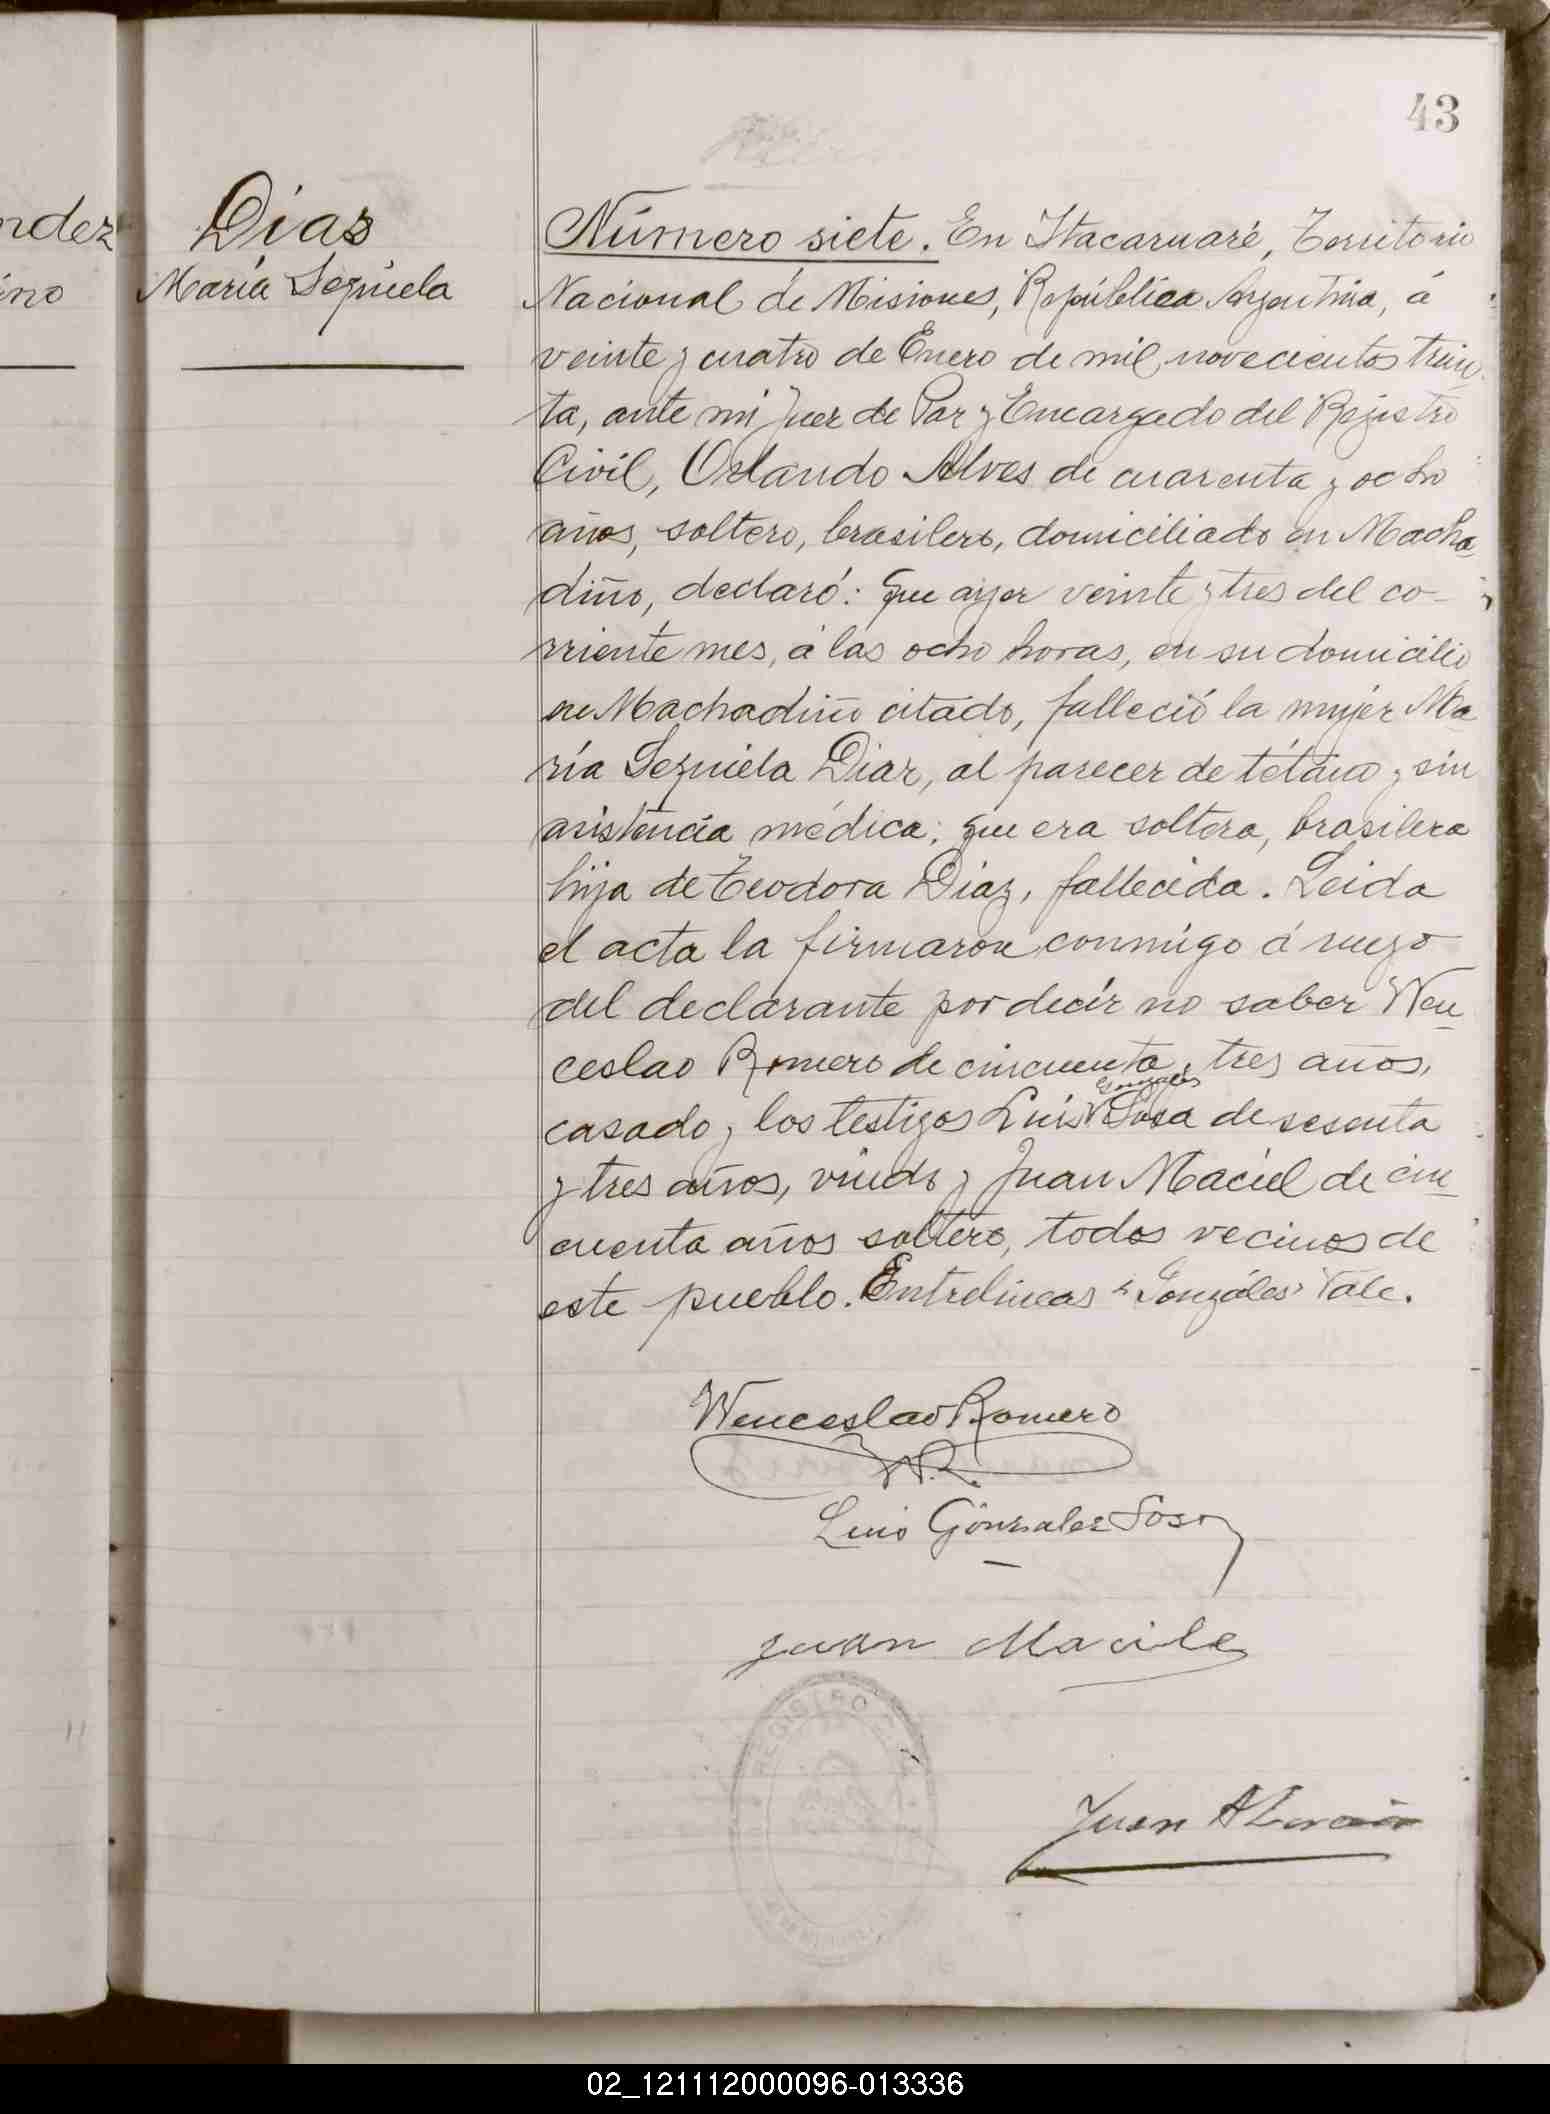 43
ndez
ino
Diaz
María Sequiela
Número siete. En Itacaruaré, Territorio
Nacional de Misiones, República Argentina, á
veinte y cuatro de Enero de mil novecientos trein-
ta, ante mi Juez de Paz y Encargado del Registro
Civil, Orlando Alves de cuarenta y ocho
años, soltero, brasilero, domiciliado en Macha-
diño, declaró: Que ayer veinte y tres del co-
rriente mes, á las ocho horas, en su domicilio
en Machadiño citado, falleció la mujer Ma-
ría Sequiela Diaz, al parecer de tétano y sin
asistencia médica; que era soltera, brasilera
hija de Teodora Diaz, fallecida. Leida
el acta la firmaron conmigo á ruego
del declarante por decir no saber Wen-
ceslao Romero de cincuenta y tres años,
casado y los testigos Luis Gonzáles Sosa de sesenta
y tres años, viudo y Juan Maciel de cin-
cuenta años soltero, todos vecinos de
este pueblo. Entrelineas "Gonzáles" Vale.
Wenceslao Romero
W.R.
Luis Gonzalez Sosa
Juan Maciel
REGISTRO
Juan A
02_121112000096-013336